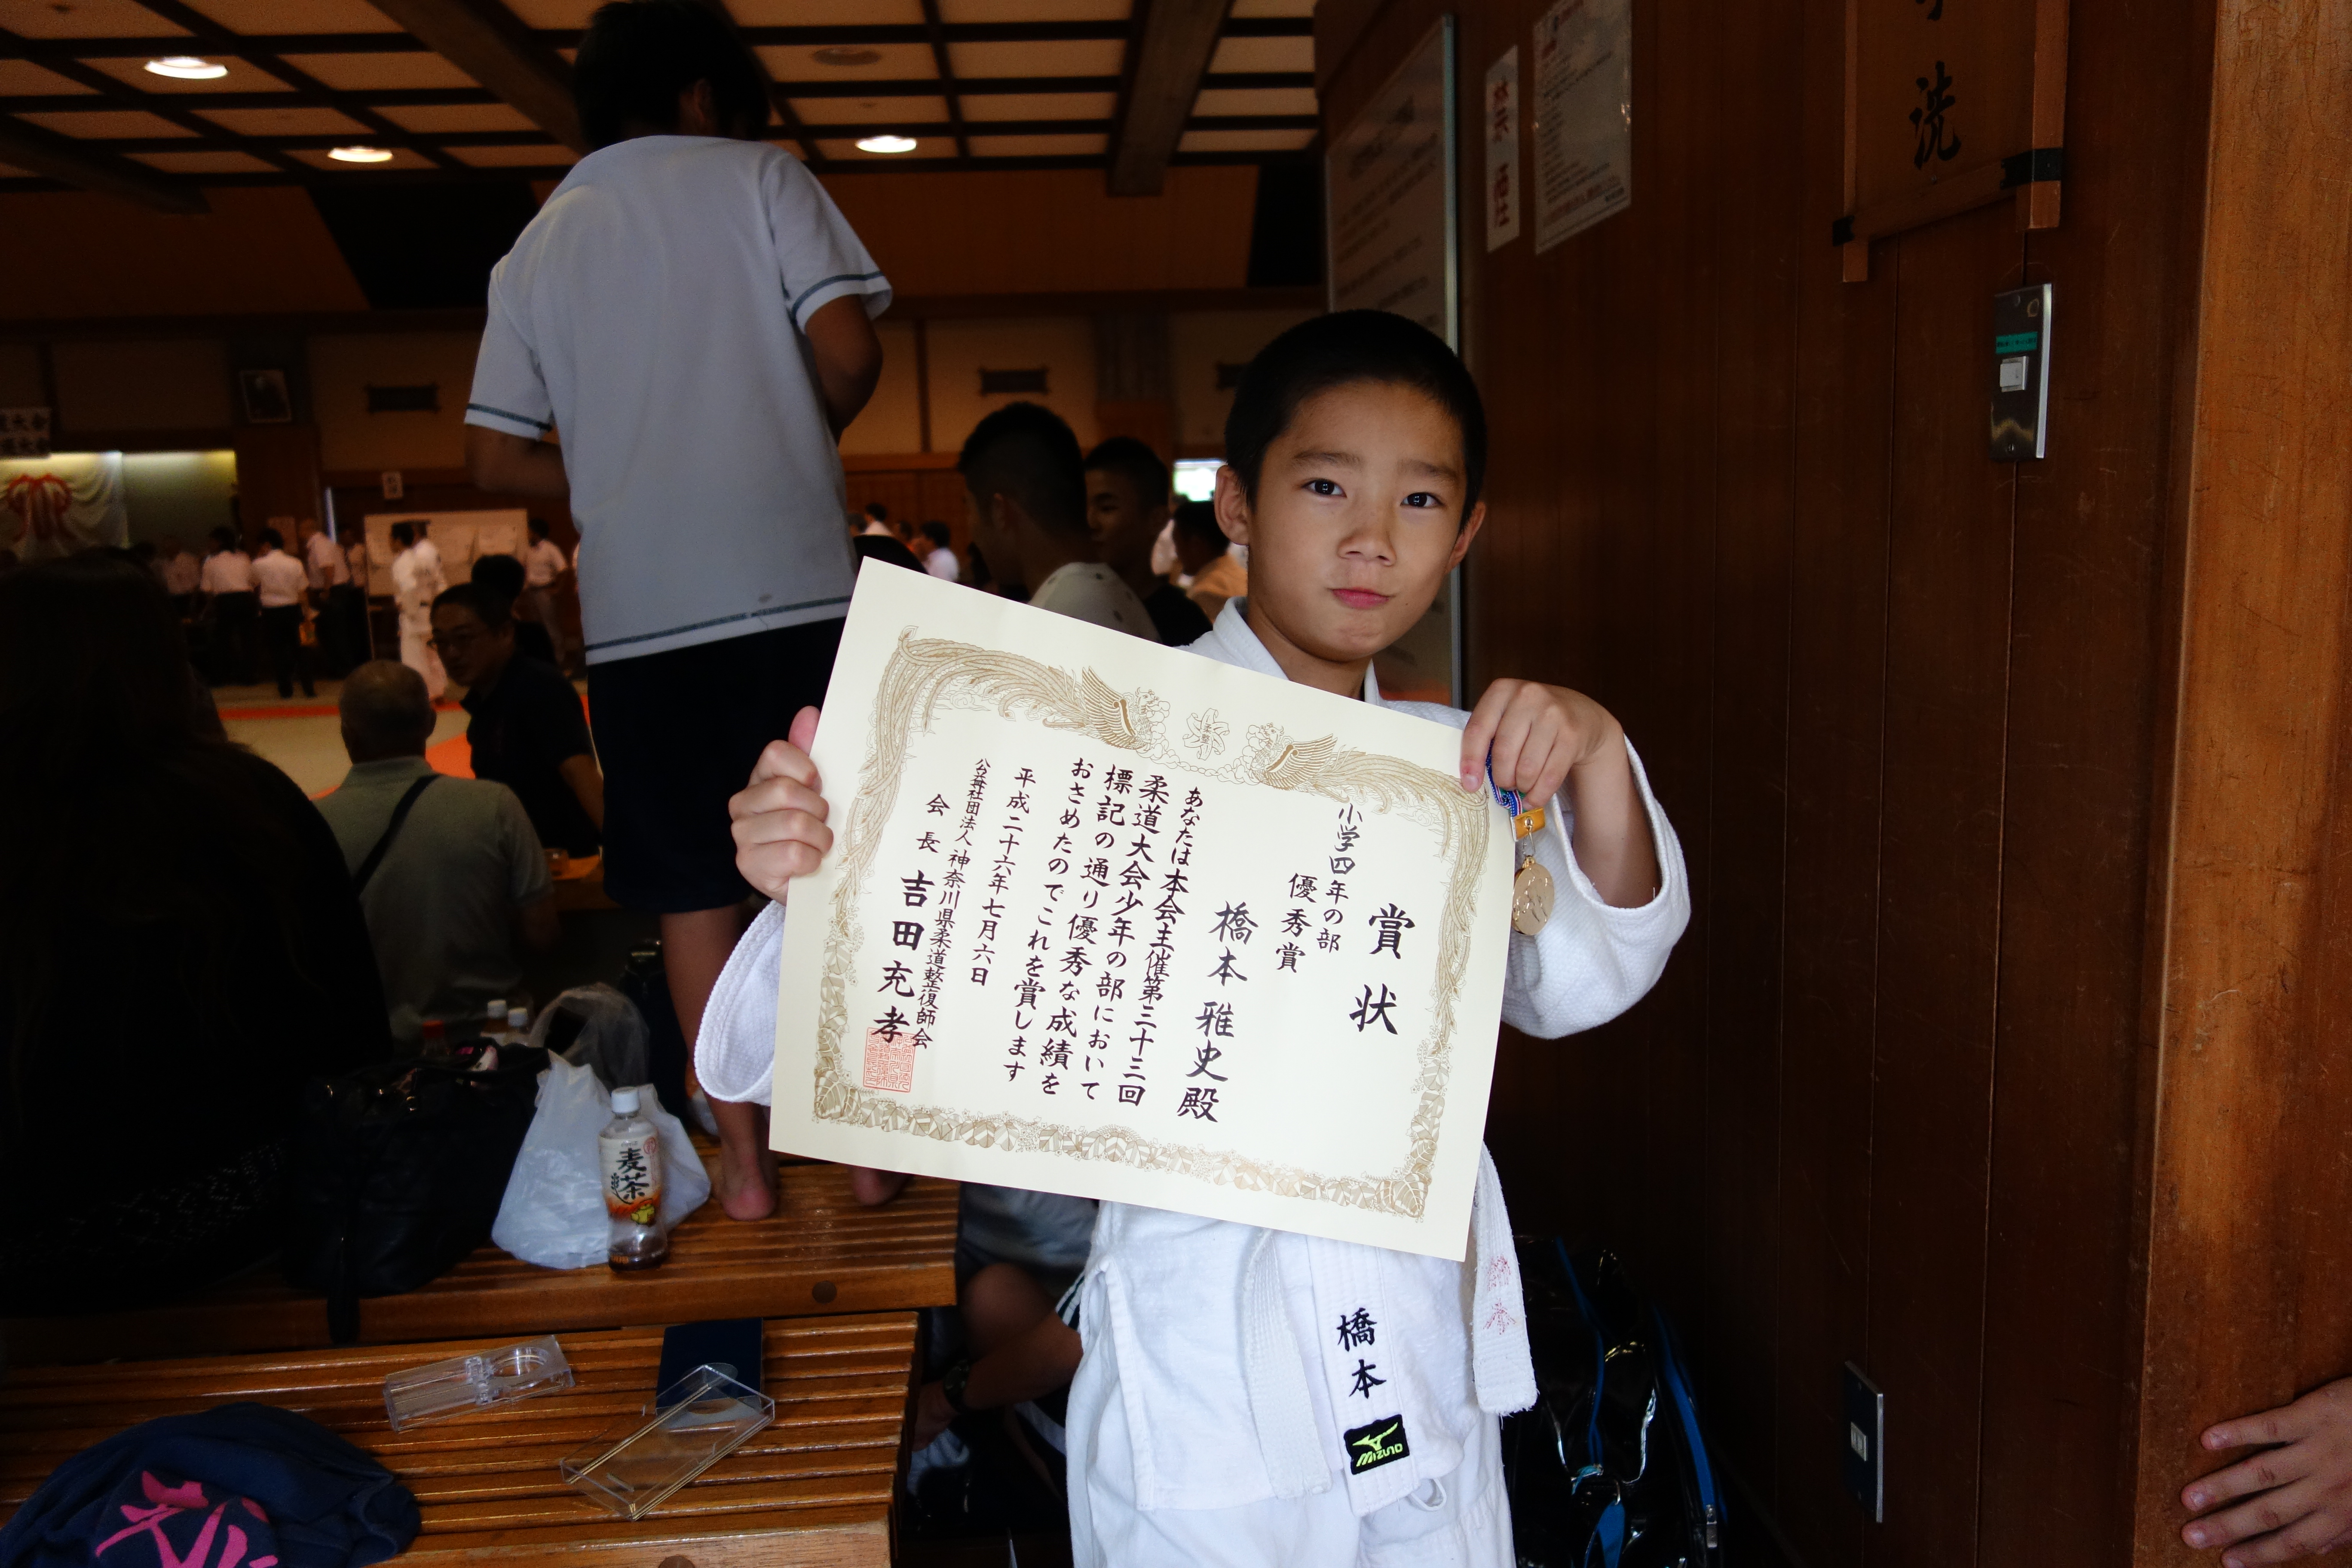 賞状
小学四年の部
優秀賞
橋本雅史殿
あなたは本会主催第三十三回
柔道大会少年の部において
標記の通り優秀な成績を
おさめたのでこれを賞します
平成二十六年七月六日
公益社団法人 神奈川県柔道整復師会
会長 吉田充孝
橋本
MIZUNO
麦茶
禁煙
洗